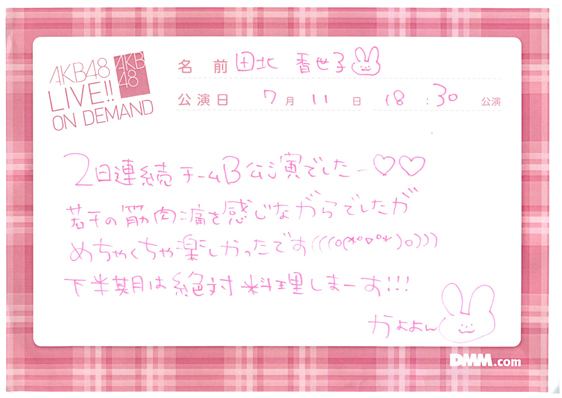 AKB48
LIVE!!
ON DEMAND
AKB
48
名前 田北 香世子
公演日 7月11日 18:30 公演
2日連続チームB公演でしたー♡♡
若干の筋肉痛を感じながらでしたが
めちゃくちゃ楽しかったです(((o(*°▽°*)o)))
下半期は絶対料理しまーす!!!
かよよん
DMM.com